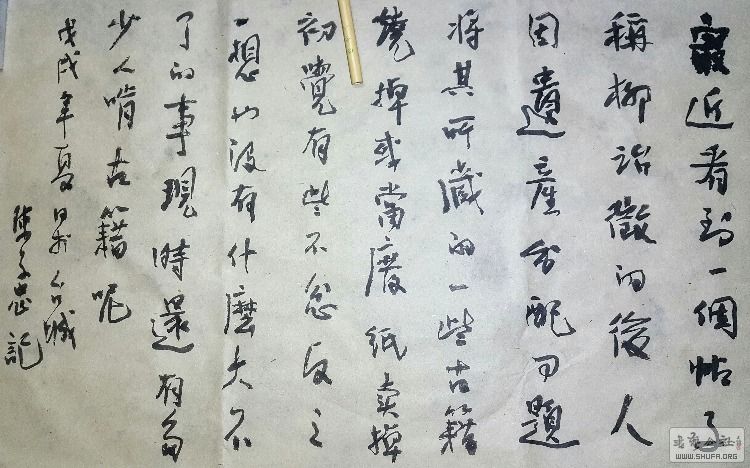 最近看到一個帖子
稱柳詒徵的後人
因遺產分配问題
将其所藏的一些古籍
燒掉或當廢纸卖掉
初覺有些不忿反之
一想也没有什麼大不
了的事現時還有多
少人啃古籍呢
戊戌年夏日於台城
陳子忠記
WWW.SHUFA.ORG